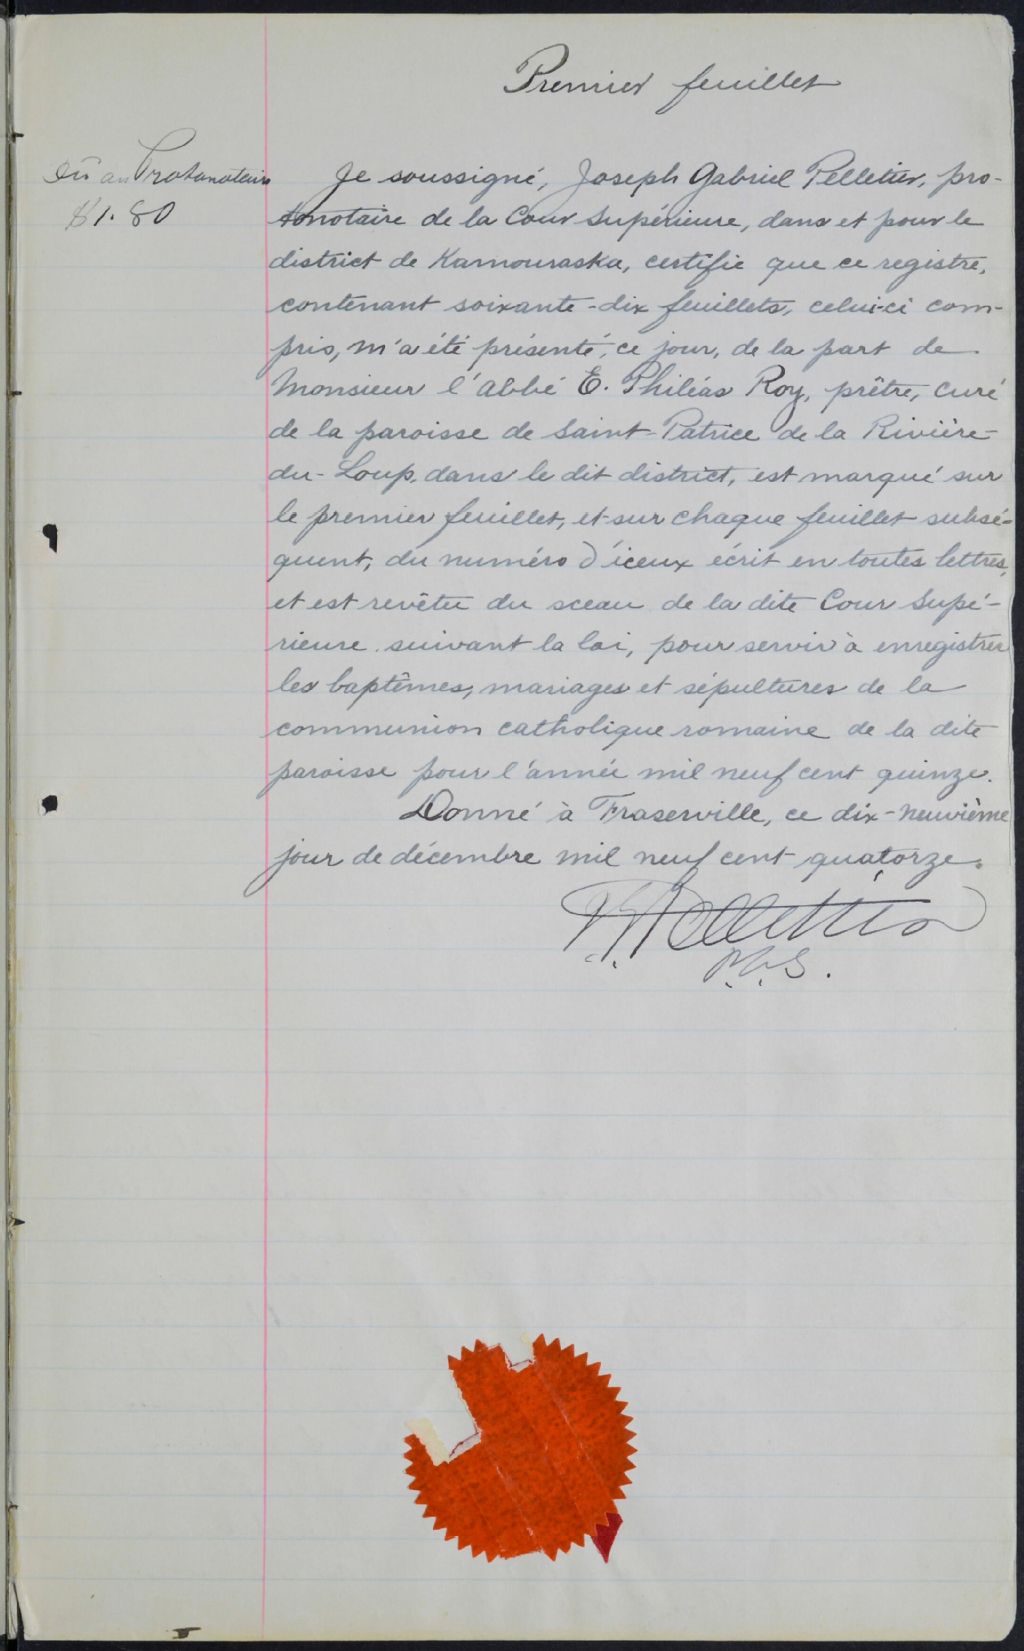 Premier feuillet
Dû au Protonotaire
$1.80
Je soussigné, Joseph Gabriel Pelletier, pro-
tonotaire de la Cour Supérieure, dans et pour le
district de Kamouraska, certifie que ce registre,
contenant soixante-dix feuillets, celui-ci com-
pris, m'a été présenté, ce jour, de la part de
Monsieur l'abbé E. Philéas Roy, prêtre, curé
de la paroisse de Saint-Patrice de la Rivière-
du-Loup, dans le dit district, est marqué sur
le premier feuillet, et sur chaque feuillet subsé-
quent, du numéro d'iceux écrit en toutes lettres,
et est revêtu du sceau de la dite Cour Supé-
rieure suivant la loi, pour servir à enregistrer
les baptêmes, mariages et sépultures de la
communion catholique romaine de la dite
paroisse pour l'année mil neuf cent quinze.
Donné à Fraserville, ce dix-neuvième
jour de décembre mil neuf cent quatorze.
Pelletier
P.C.S.